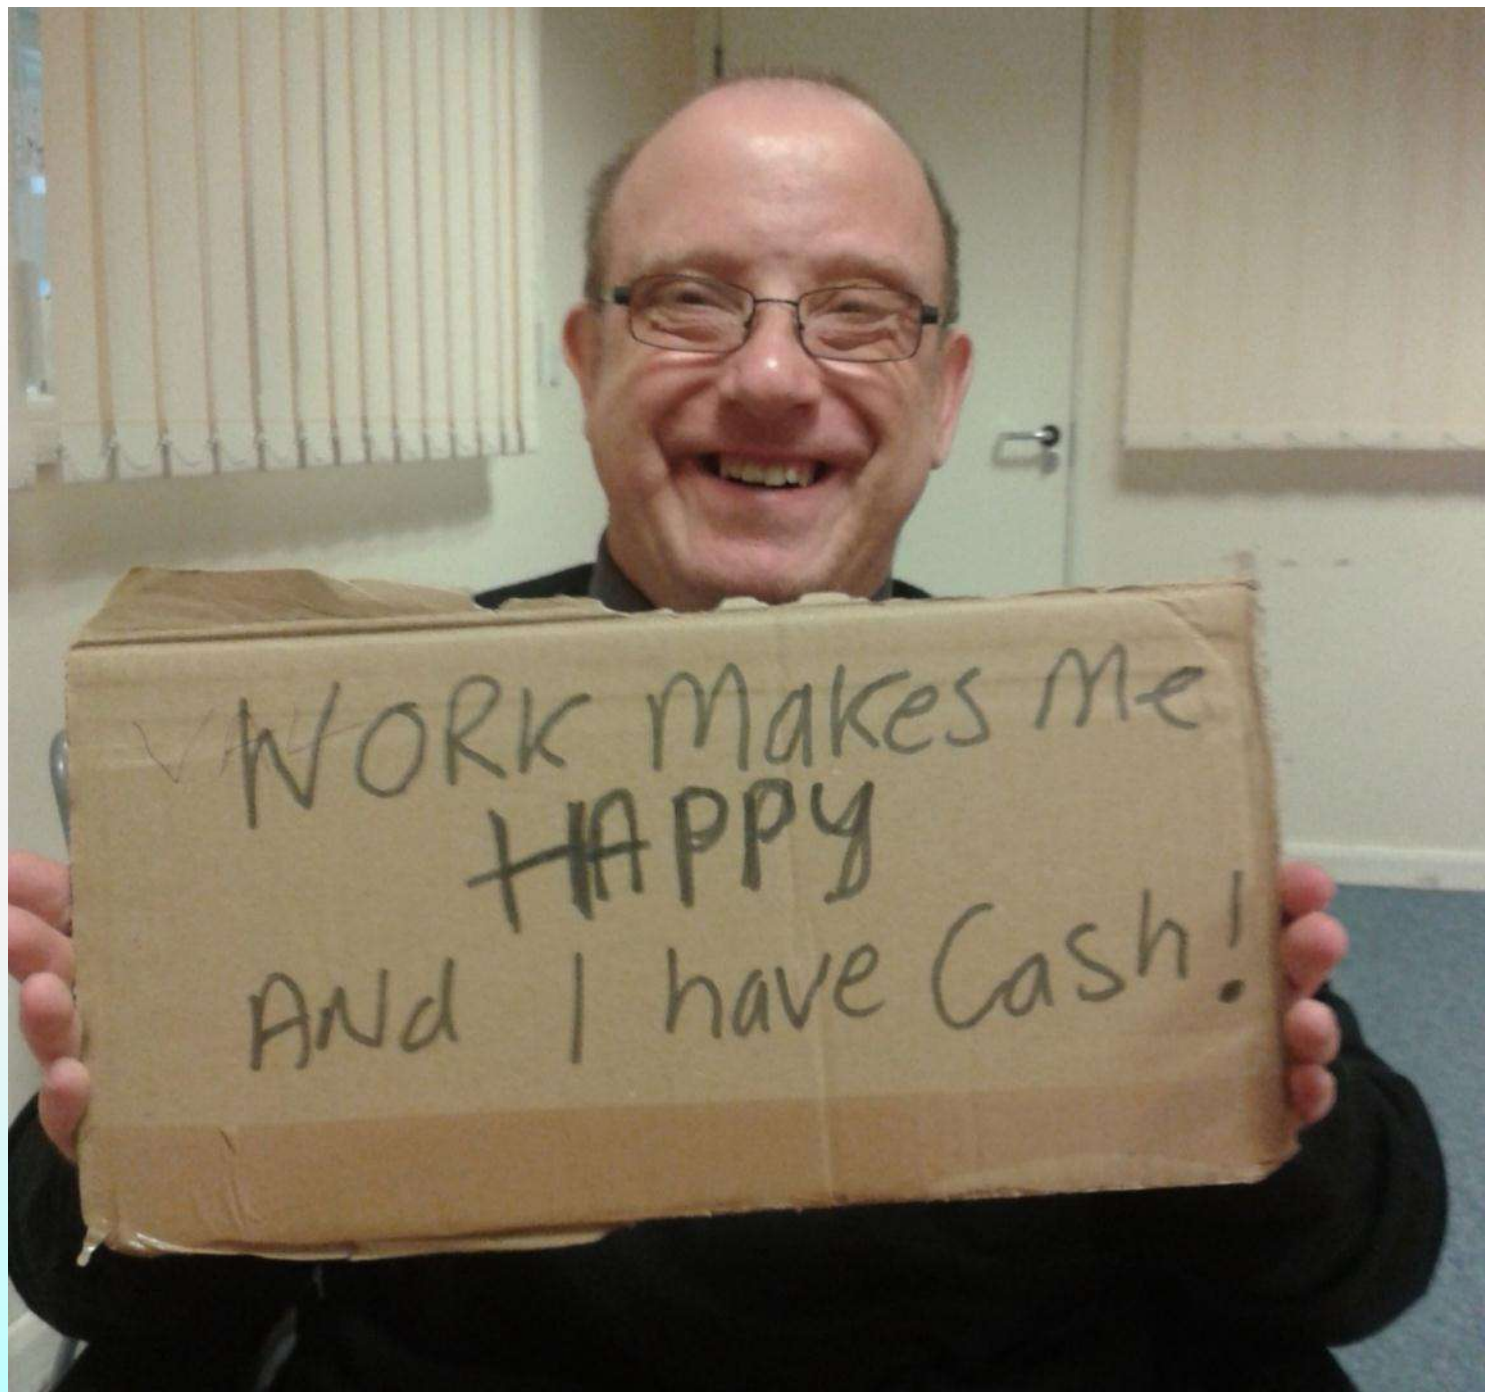 WORK Makes Me
HAPPY
ANd I have Cash!